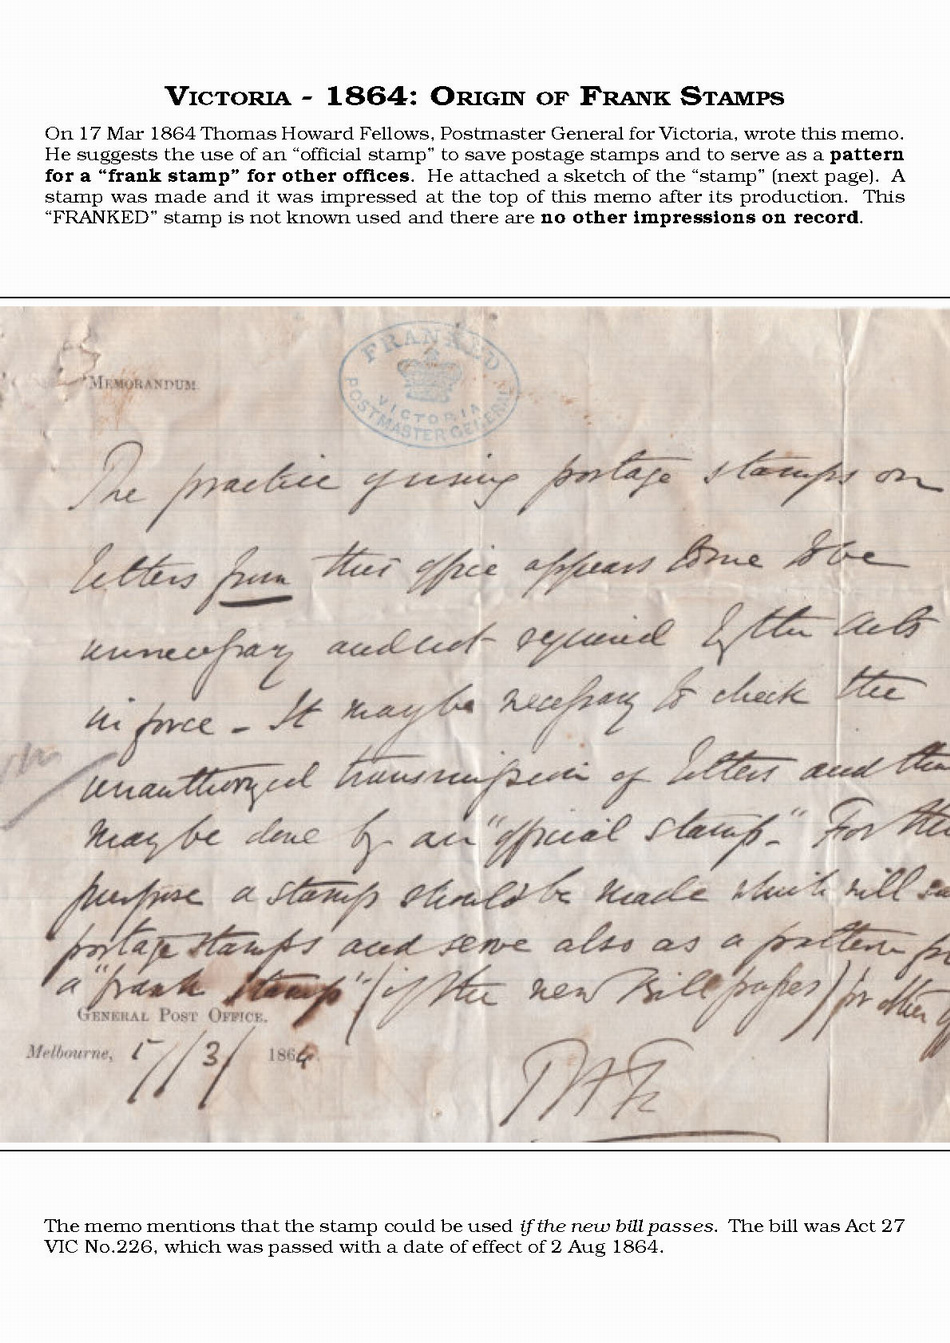 VICTORIA - 1864: ORIGIN OF FRANK STAMPS
On 17 Mar 1864 Thomas Howard Fellows, Postmaster General for Victoria, wrote this memo.
He suggests the use of an “official stamp” to save postage stamps and to serve as a pattern
for a “frank stamp” for other offices. He attached a sketch of the “stamp” (next page). A
stamp was made and it was impressed at the top of this memo after its production. This
“FRANKED” stamp is not known used and there are no other impressions on record.
FRANKED
VICTORIA
POSTMASTER GENERAL
MEMORANDUM
The practice of using postage stamps on
letters from this office appears to me to be
unnecessary and not required by the Acts
in force - It may be necessary to check the
unauthorized transmission of letters and
may be done by an "official stamp". For
purpose a stamp should be made which will
postage stamps and serve also as a pattern
a "frank stamp" (if the new Bill passes) for other
GENERAL POST OFFICE.
Melbourne, 17/3/ 1864
THF
The memo mentions that the stamp could be used if the new bill passes. The bill was Act 27
VIC No.226, which was passed with a date of effect of 2 Aug 1864.